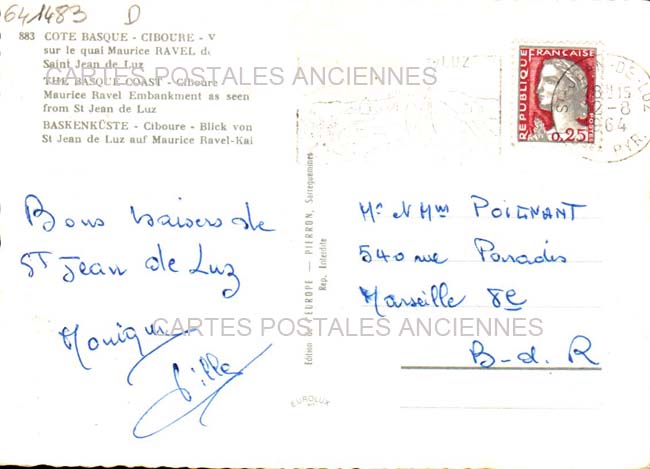 641483 D
883 COTE BASQUE - CIBOURE - V
sur le quai Maurice RAVEL de
Saint Jean de Luz
THE BASQUE COAST - Ciboure
Maurice Ravel Embankment as seen
from St Jean de Luz
BASKENKÜSTE - Ciboure - Blick von
St Jean de Luz auf Maurice Ravel-Kai
CARTES POSTALES ANCIENNES
REPUBLIQUE FRANÇAISE
0,25
POSTES
ST-JEAN-DE-LUZ
18H15
12-8
64
PYR.
LUZ
Bons baisers de
ST Jean de Luz
Monique
Gilles
Edition de l'EUROPE — PIERRON, Sarreguemines
Rep. Interdite
EUROLUX
Mr & Mme POIGNANT
540 rue Paradis
Marseille 8e
B-d-R
CARTES POSTALES ANCIENNES